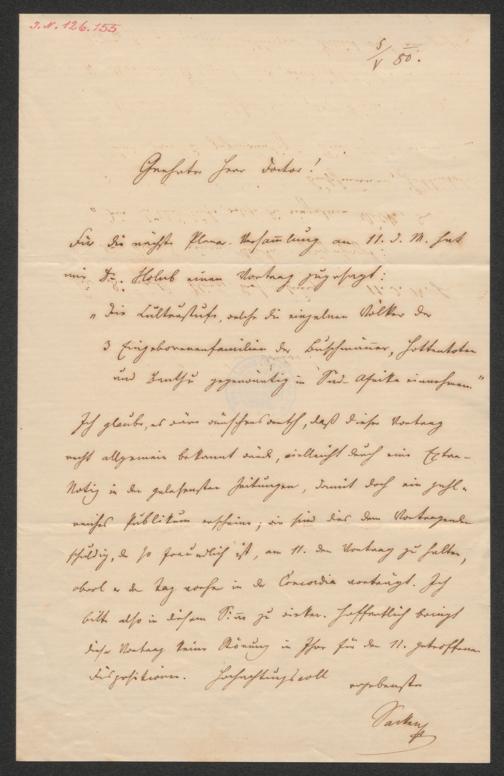 J.N. 126.155
5/V 80.
Geehrter Herr Doctor!
Für die nächste Plenar-Versammlung am 11. d. M. hat
mir Dr. Holub einen Vortrag zugesagt:
„Die Culturstufe, welche die einzelnen Völker der
3 Eingeborenenfamilien der Buschmänner, Hottentoten
und Banthu gegenwärtig in Süd-Afrika einnehmen."
Ich glaube, es wäre wünschenswerth, daß dieser Vortrag
recht allgemein bekannt würde, vielleicht durch eine Extra-
Notiz in den gelesensten Zeitungen, damit doch ein zahl-
reiches Publikum erscheine; wir sind dies dem Vortragenden
schuldig, der so freundlich ist, am 11. den Vortrag zu halten,
obwol er den Tag vorher in der Concordia vorträgt. Ich
bitte also in diesem Sinne zu wirken. Hoffentlich bringt
dieser Vortrag keine Störung in Ihre für den 11. getroffenen
Dispositionen. Hochachtungsvoll
ergebenster
Sacken